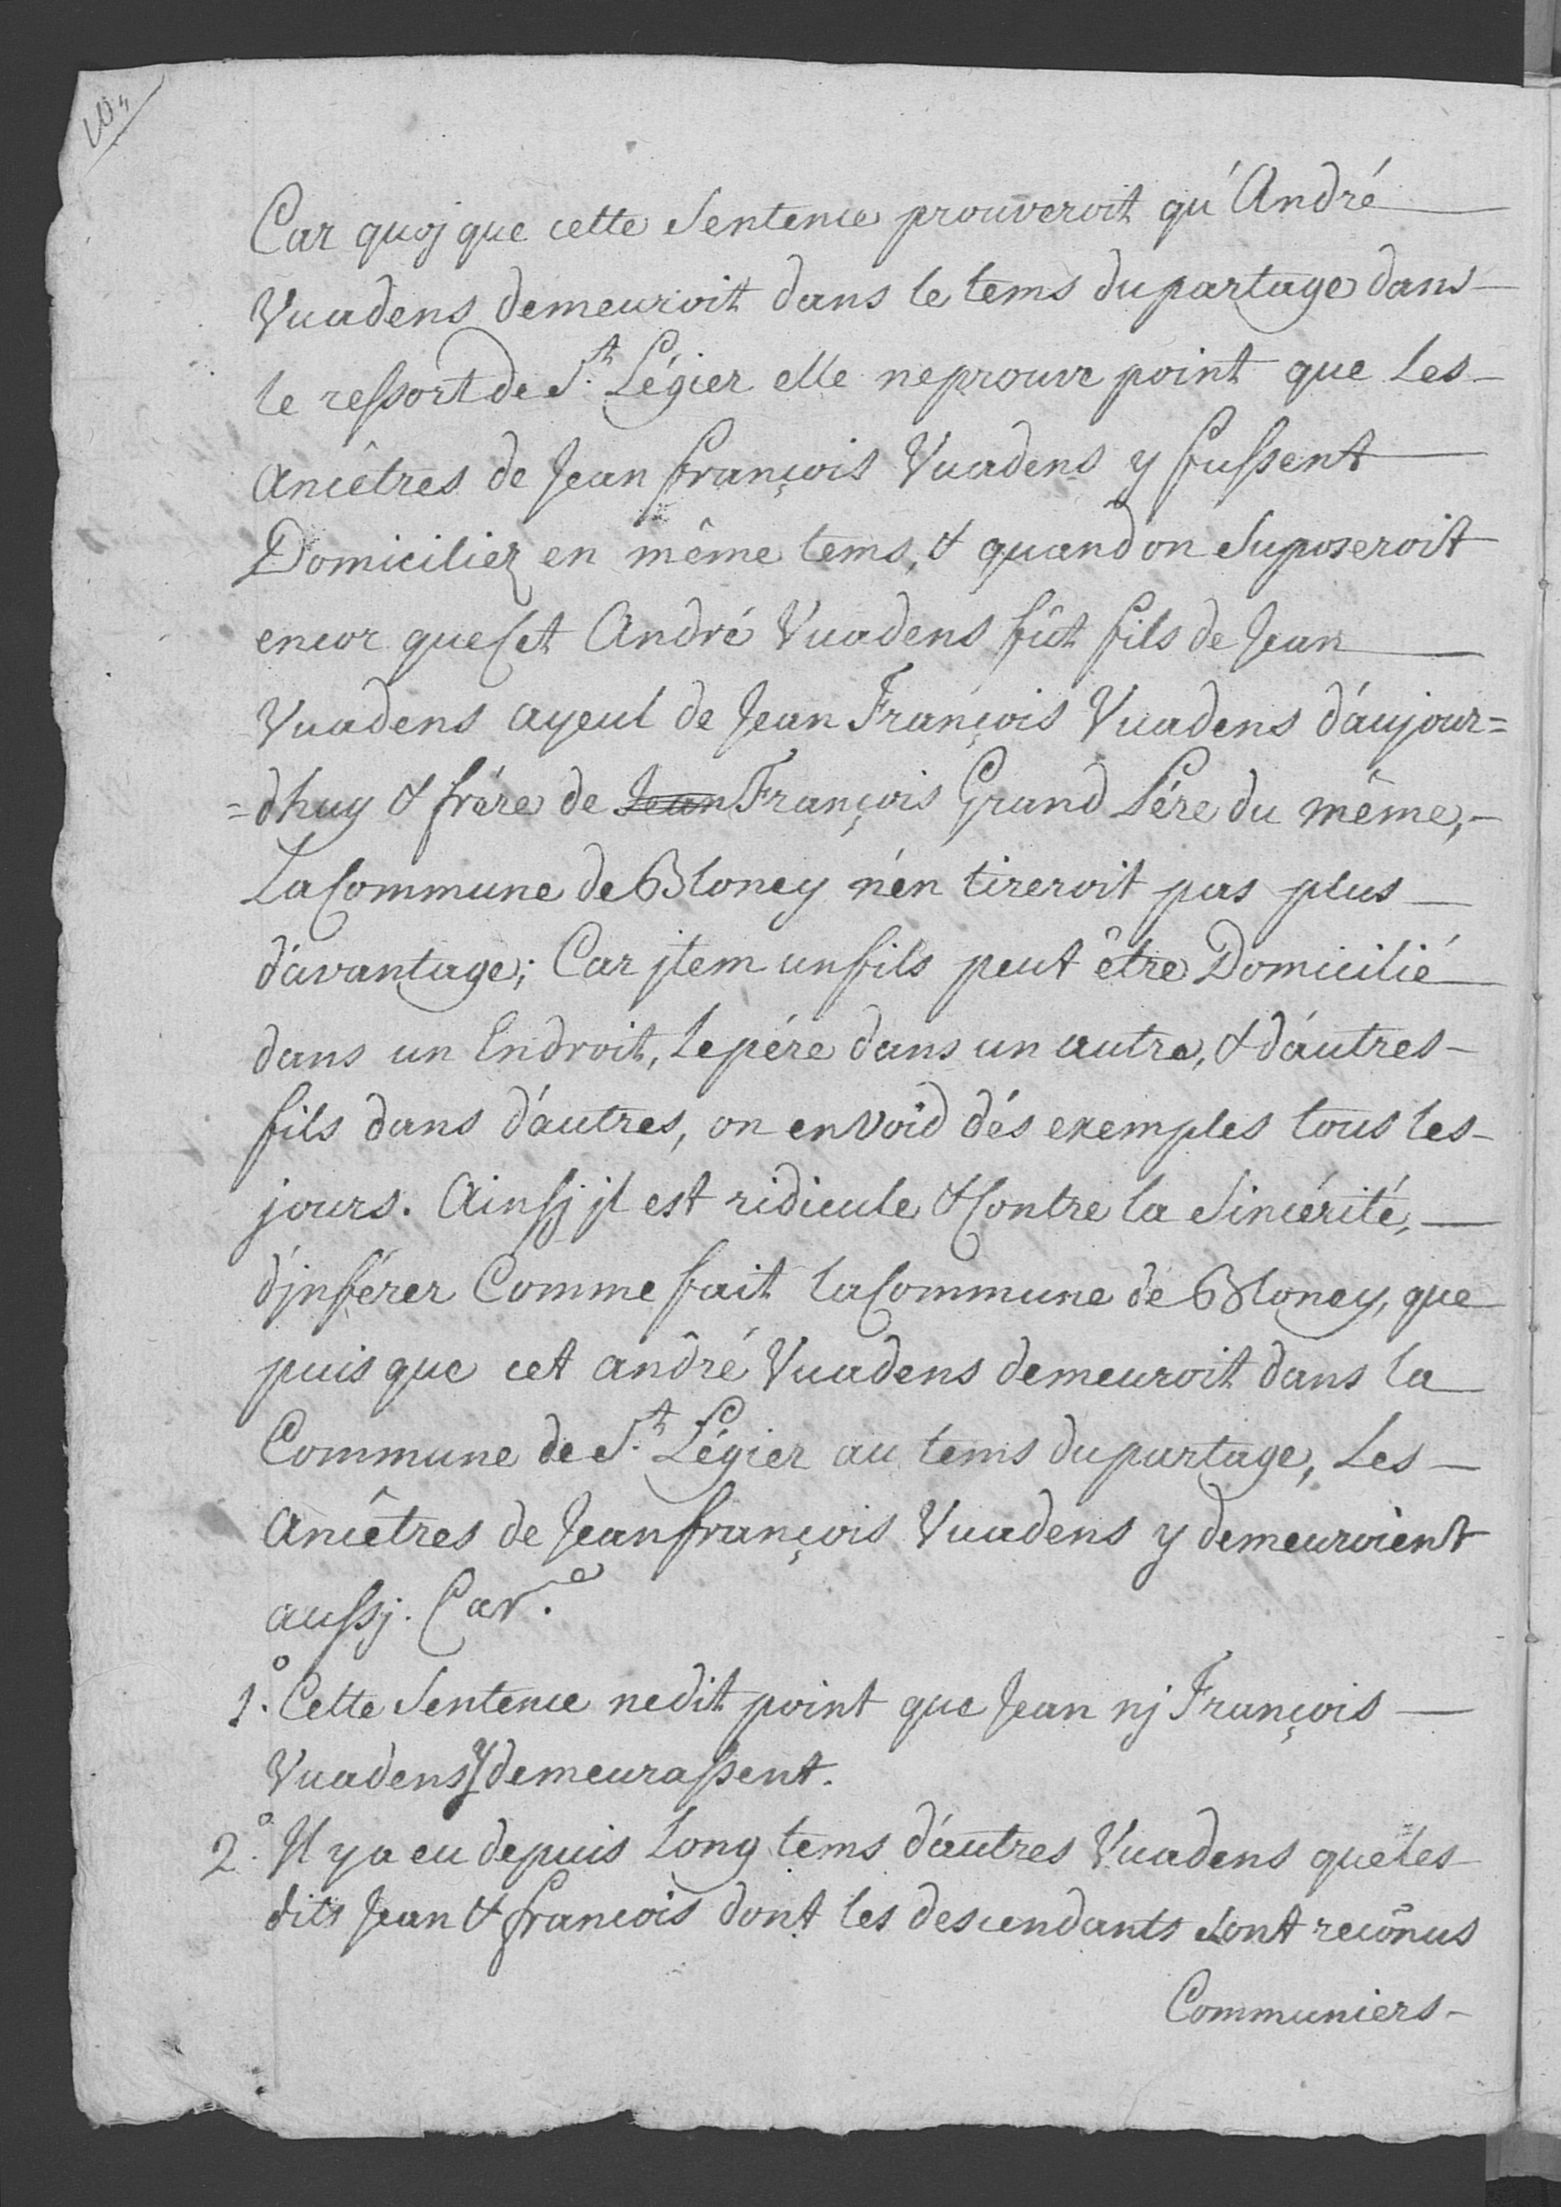 Car quoj que cette Sentence prouveroit qu'André
Vuadens demeuroit dans le tems du partage dans
le ressort de St. Légier elle ne prouve point que Les
Ancêtres de Jean françois Vuadens y fussent
Domiciliez en même tems, & quand on Suposeroit
encor que Cet André Vuadens fût fils de Jean
Vuadens ayeul de Jean François Vuadens d'aujour=
=dhuy & frére de Jean François Grand Pére du même,
La Commune de Bloney n'én tireroit pas plus
d'avantage; Car jtem un fils peut être Domicilié
dans un Endroit, le pére dans un autre, & d'autres
fils dans d'autres, on en void dés exemples tous les
jours. Ainsj jl est ridicule & Contre la Sincérité,
d'jnférer Comme fait la Commune de Bloney, que
puis que cet andré Vuadens demeuroit dans la
Commune de St. Légier au tems du partage, Les
Ancêtres de Jean françois Vuadens y demeuroient
aussj. Car.
1.° Cette Sentence ne dit point que Jean nj François
Vuadens y demeurassent.
2.° Il y a eu depuis Long tems d'autres Vuadens que les
dits Jean & francois dont les descendants sont recōnus
Communiers